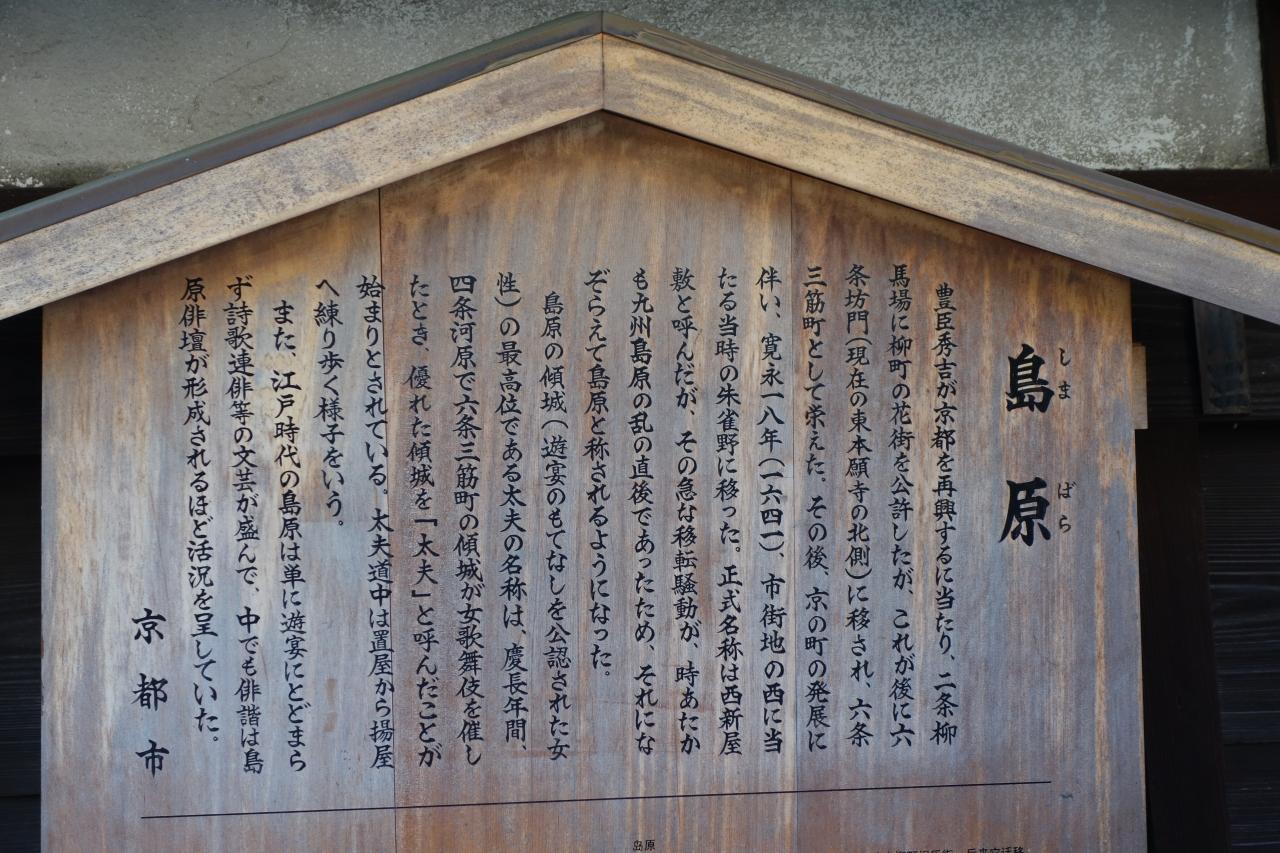 島原
しまばら
豊臣秀吉が京都を再興するに当たり、二条柳
馬場に柳町の花街を公許したが、これが後に六
条坊門(現在の東本願寺の北側)に移され、六条
三筋町として栄えた。その後、京の町の発展に
伴い、寛永一八年(一六四一)、市街地の西に当
たる当時の朱雀野に移った。正式名称は西新屋
敷と呼んだが、その急な移転騒動が、時あたか
も九州島原の乱の直後であったため、それにな
ぞらえて島原と称されるようになった。
島原の傾城(遊宴のもてなしを公認された女
性)の最高位である太夫の名称は、慶長年間、
四条河原で六条三筋町の傾城が女歌舞伎を催し
たとき、優れた傾城を「太夫」と呼んだことが
始まりとされている。太夫道中は置屋から揚屋
へ練り歩く様子をいう。
また、江戸時代の島原は単に遊宴にとどまら
ず詩歌連俳等の文芸が盛んで、中でも俳諧は島
原俳壇が形成されるほど活況を呈していた。
京都市
岛原